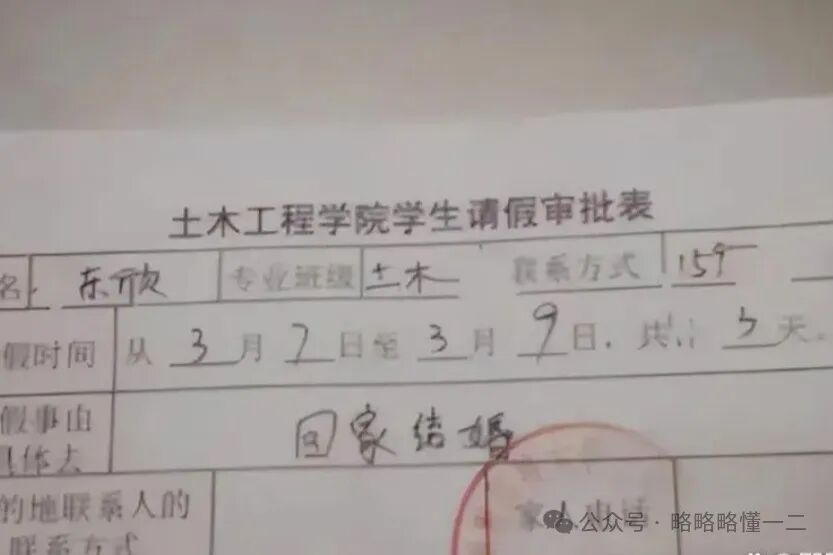 土木工程学院学生请假审批表
名 东欣 专业班级 土木 联系方式 159
假时间 从 3 月 7 日至 3 月 9 日,共计 3 天。
假事由 回家结婚
具体去
的地联系人的 家人电话
联系方式
公众号·略略略懂一二